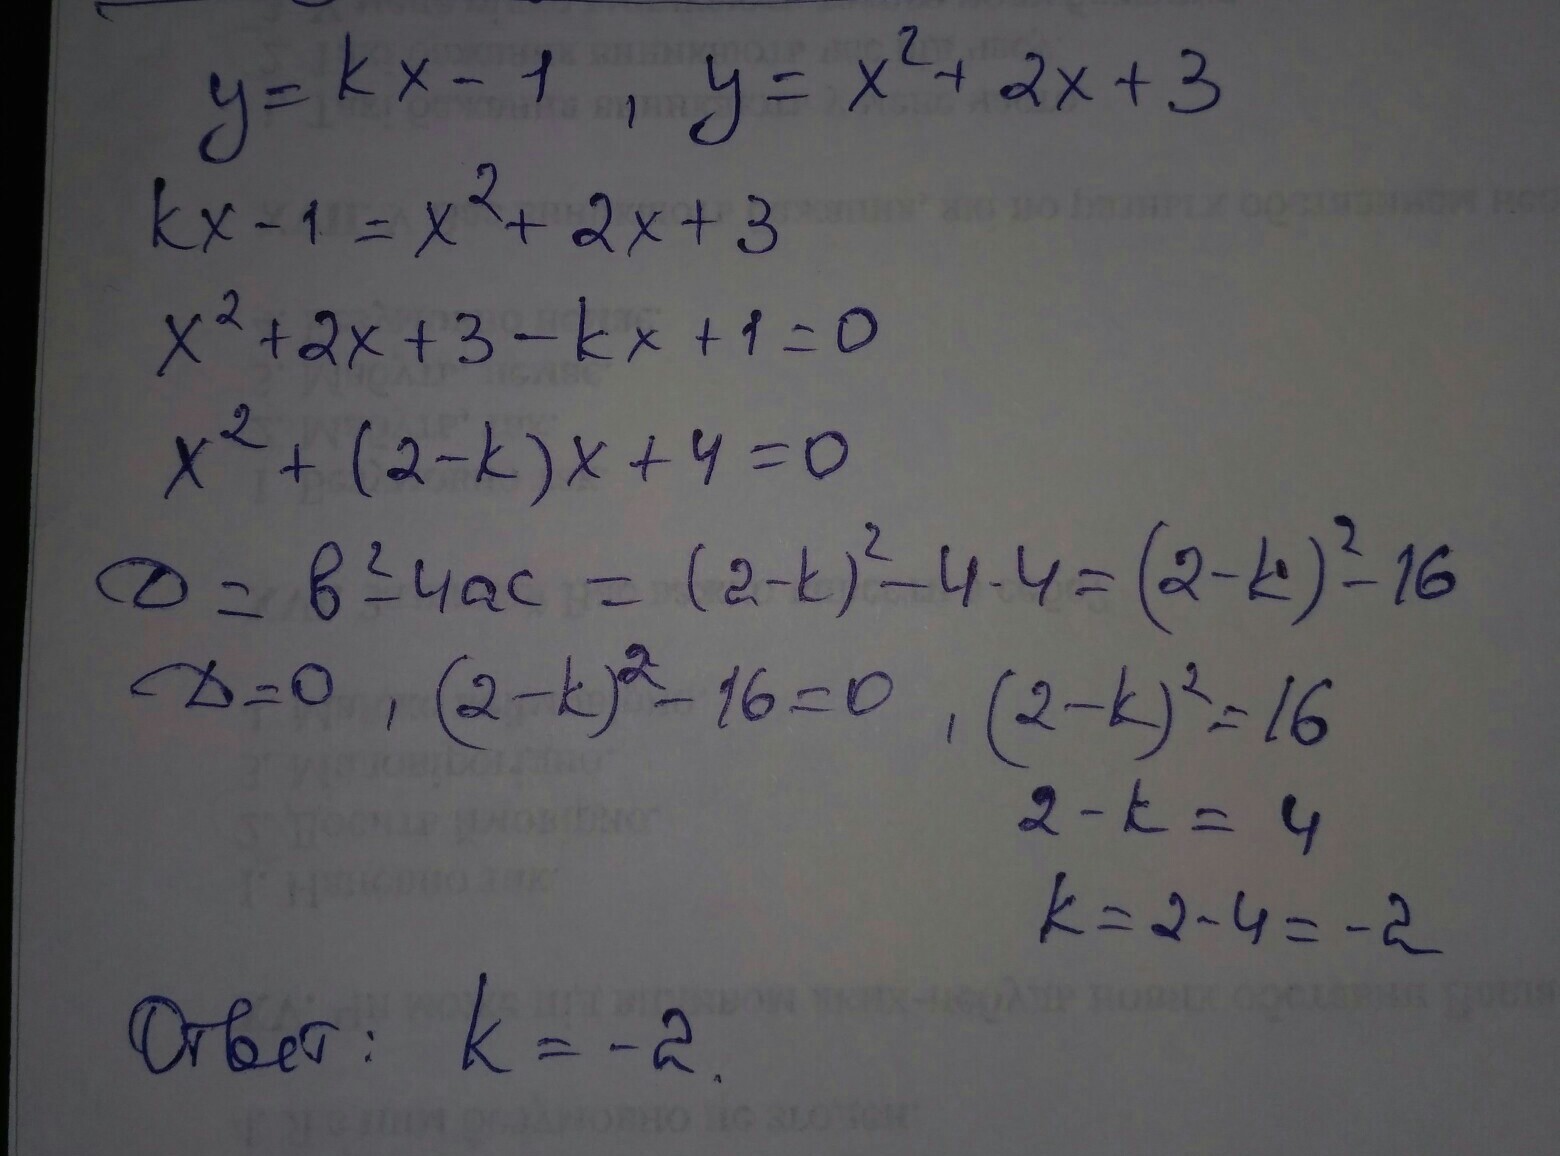 y = kx - 1 , y = x² + 2x + 3
kx - 1 = x² + 2x + 3
x² + 2x + 3 - kx + 1 = 0
x² + (2-k)x + 4 = 0
D = в² - 4ac = (2-k)² - 4·4 = (2-k)² - 16
D = 0 , (2-k)² - 16 = 0 , (2-k)² = 16
2 - k = 4
k = 2 - 4 = -2
Ответ: k = -2.